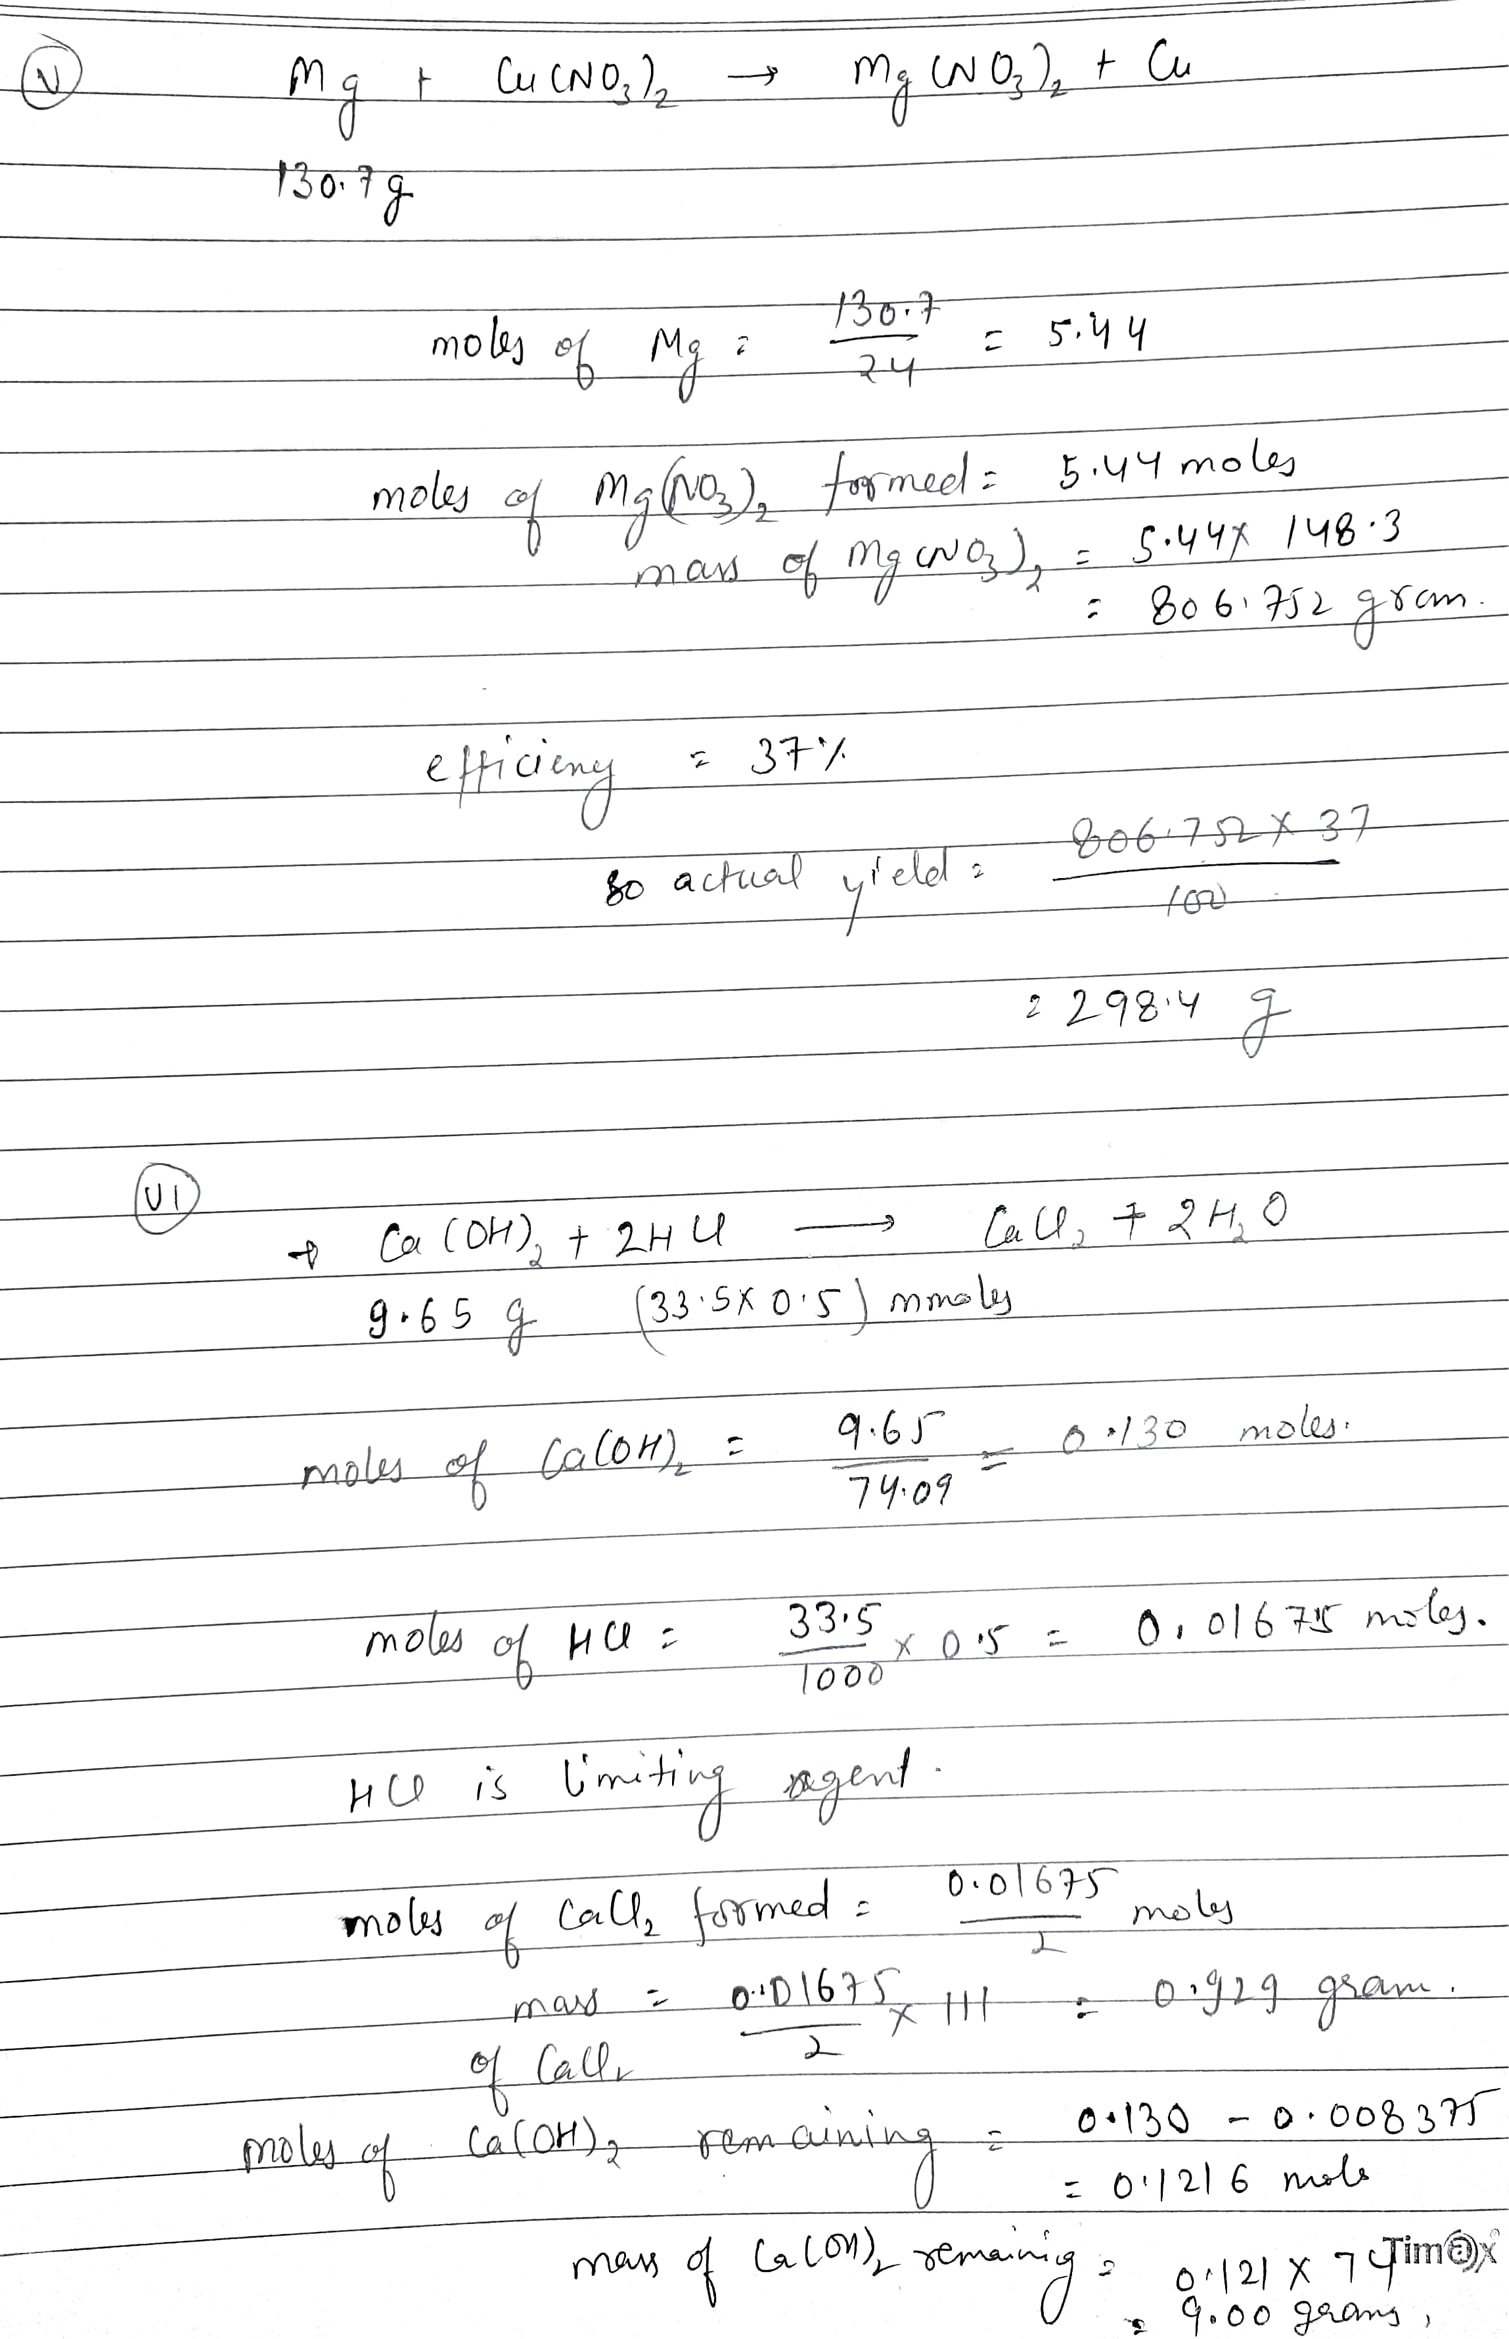 V Mg + Cu(NO3)2 → Mg(NO3)2 + Cu
130.7g
moles of Mg = 130.7/24 = 5.44
moles of Mg(NO3)2 formed = 5.44 moles
mass of Mg(NO3)2 = 5.44 x 148.3
= 806.752 gram.
efficieny = 37%
so actual yield = 806.752 x 37/100
= 298.4 g
VI
→ Ca(OH)2 + 2HCl → CaCl2 + 2H2O
9.65 g (33.5 x 0.5) mmoles
moles of Ca(OH)2 = 9.65/74.09 = 0.130 moles.
moles of HCl = 33.5/1000 x 0.5 = 0.01675 moles.
HCl is limiting ragent.
moles of CaCl2 formed = 0.01675/2 moles
mass = 0.01675/2 x 111 = 0.929 gram.
of CaCl2
moles of Ca(OH)2 remaining = 0.130 - 0.008375
= 0.1216 mole
mass of Ca(OH)2 remainig = 0.121 x 74
= 9.00 grams,
Timax